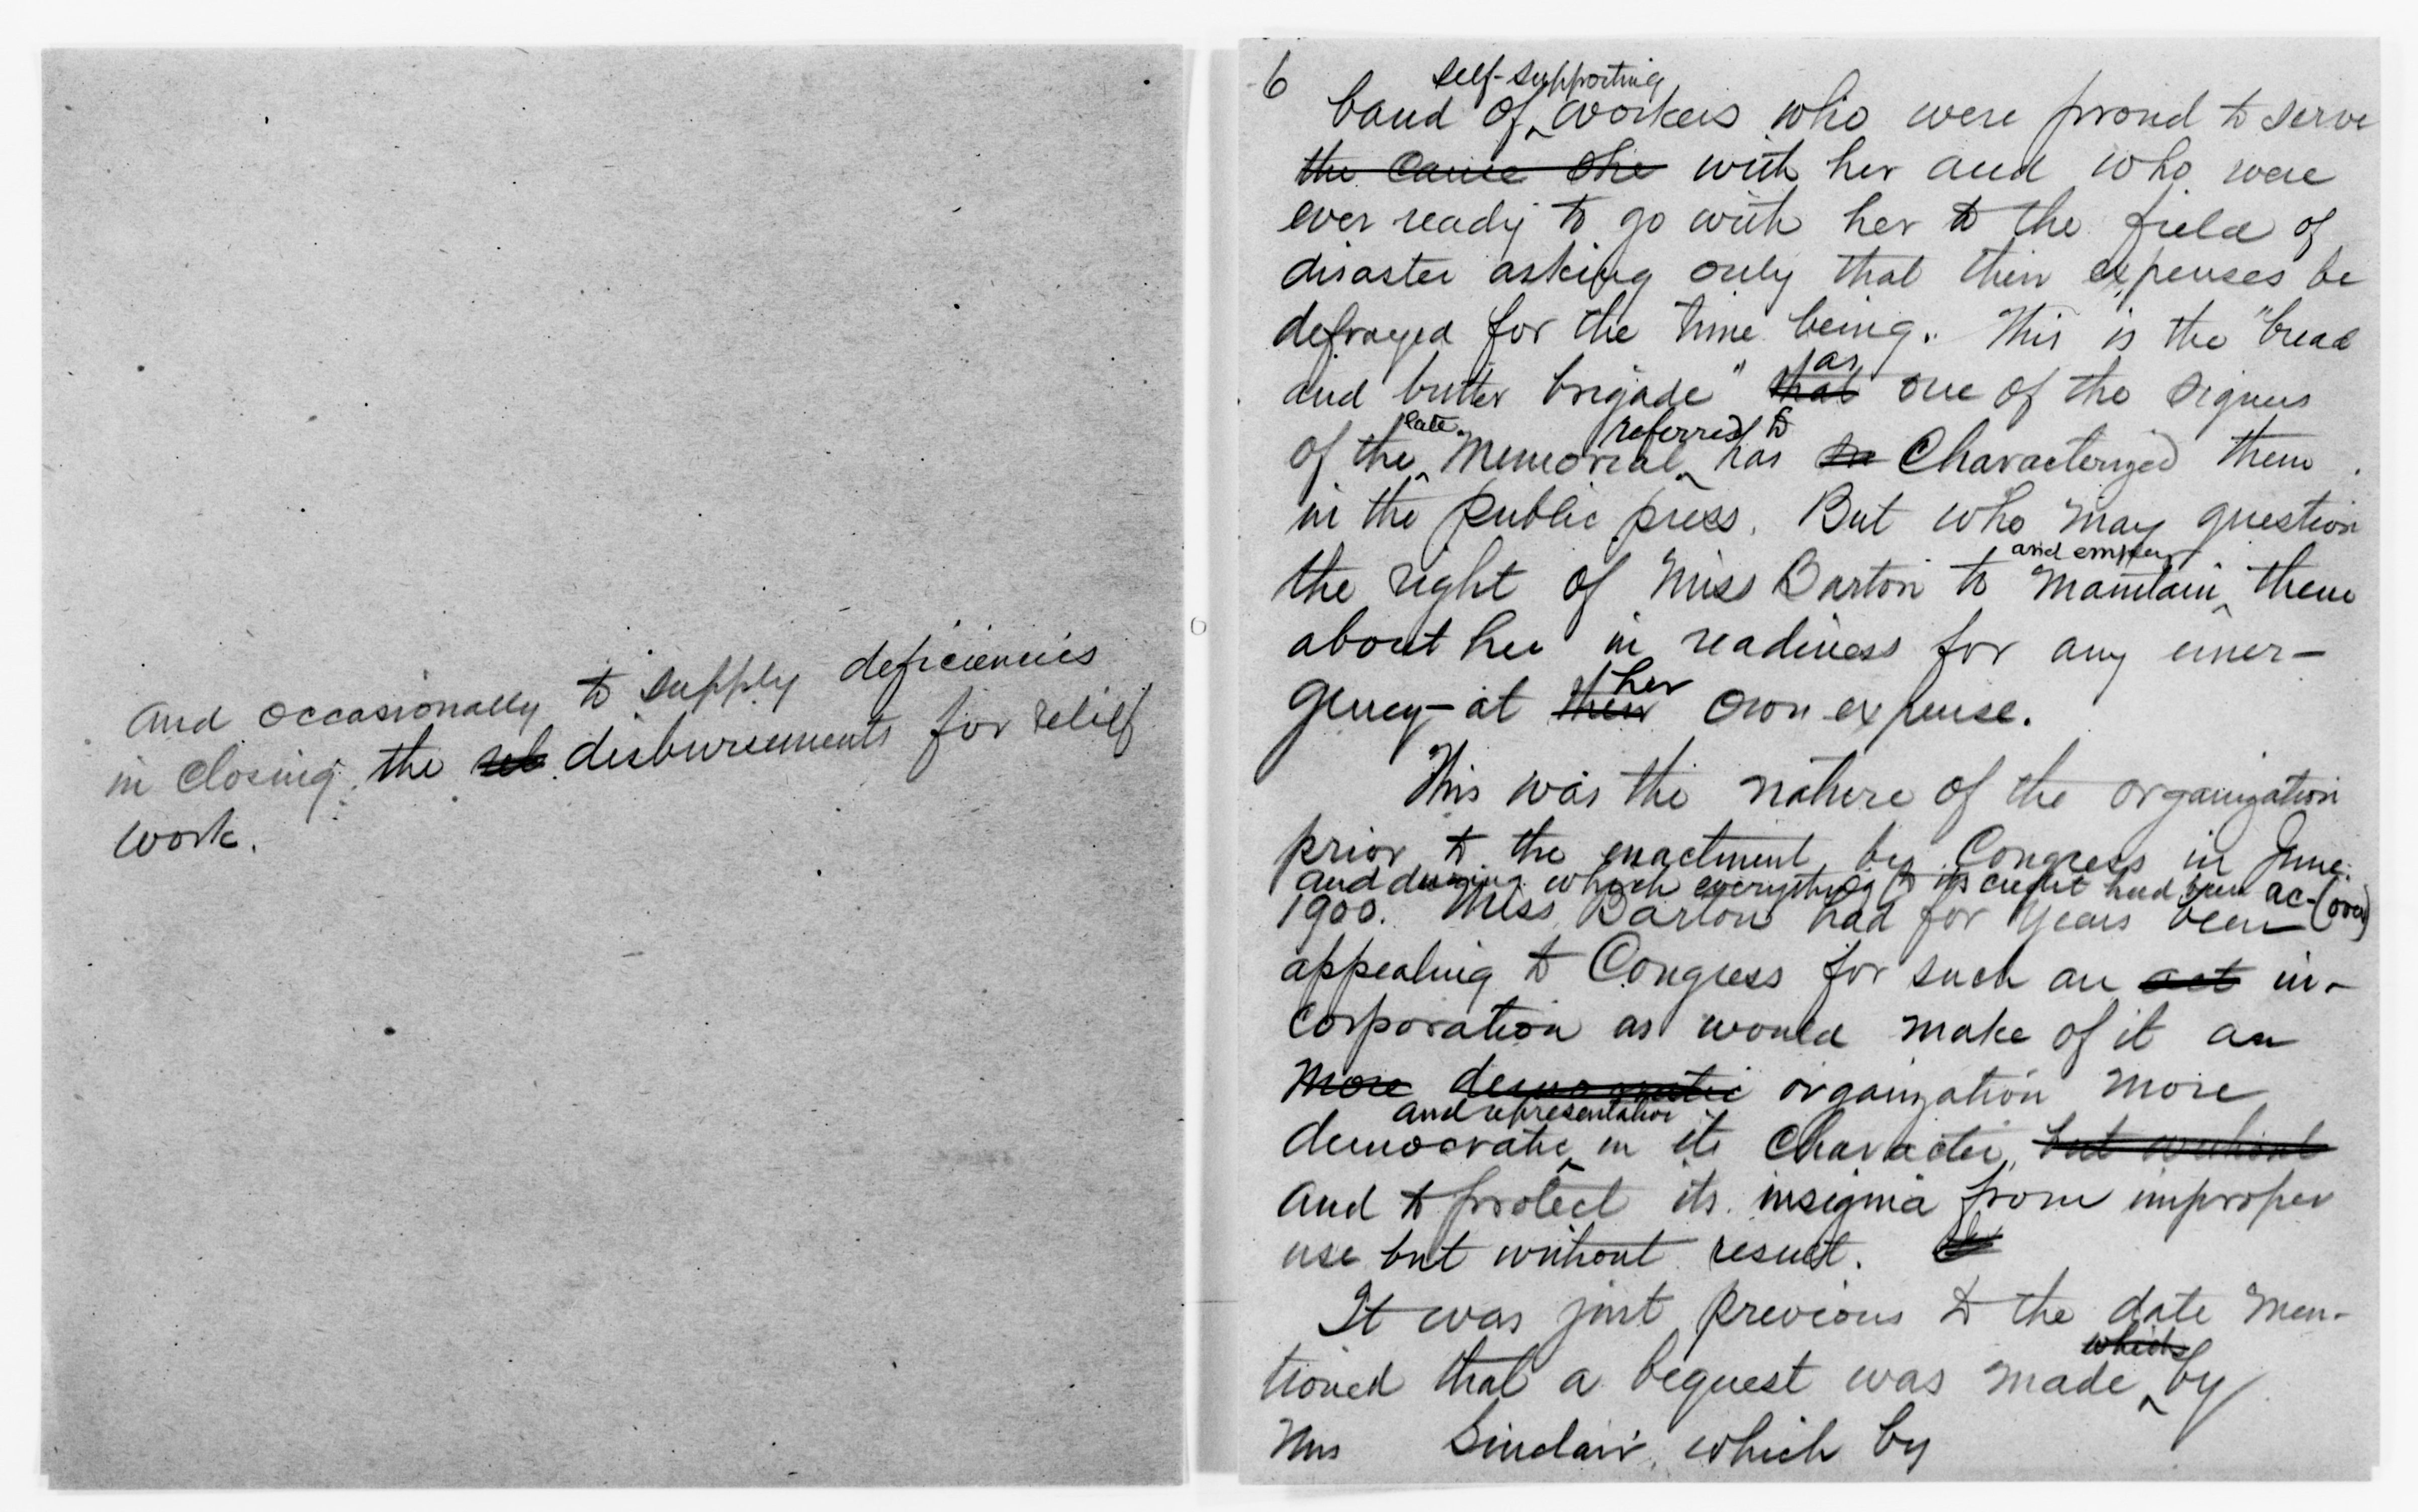 and occasionally to supply deficiencies
in closing the reb disbursements for relief
work.
6
self-supporting
band of workers who were proud to serve
the cause she with her and who were
ever ready to go with her to the field of
disaster asking only that their expenses be
defrayed for the time being. This is the "bread
as
and butter brigade" that one of the signers
late referred to
of the Memorial has so characterized them
in the public press. But who may question
and employ
the right of Miss Barton to maintain them
about her in readiness for any emer-
her
gency - at their own expense.
This was the nature of the organization
prior to the enactment by Congress in June
and during which everything to its credit had been ac- (over)
1900. Miss Barton had for years been
appealing to Congress for such an act in-
corporation as would make of it an
more democratic organization more
and representative
democratic in its character, but without
and to protect its insignia from improper
use but without result.
It was just previous to the date men-
which
tioned that a bequest was made by
Mrs Sinclair, which by